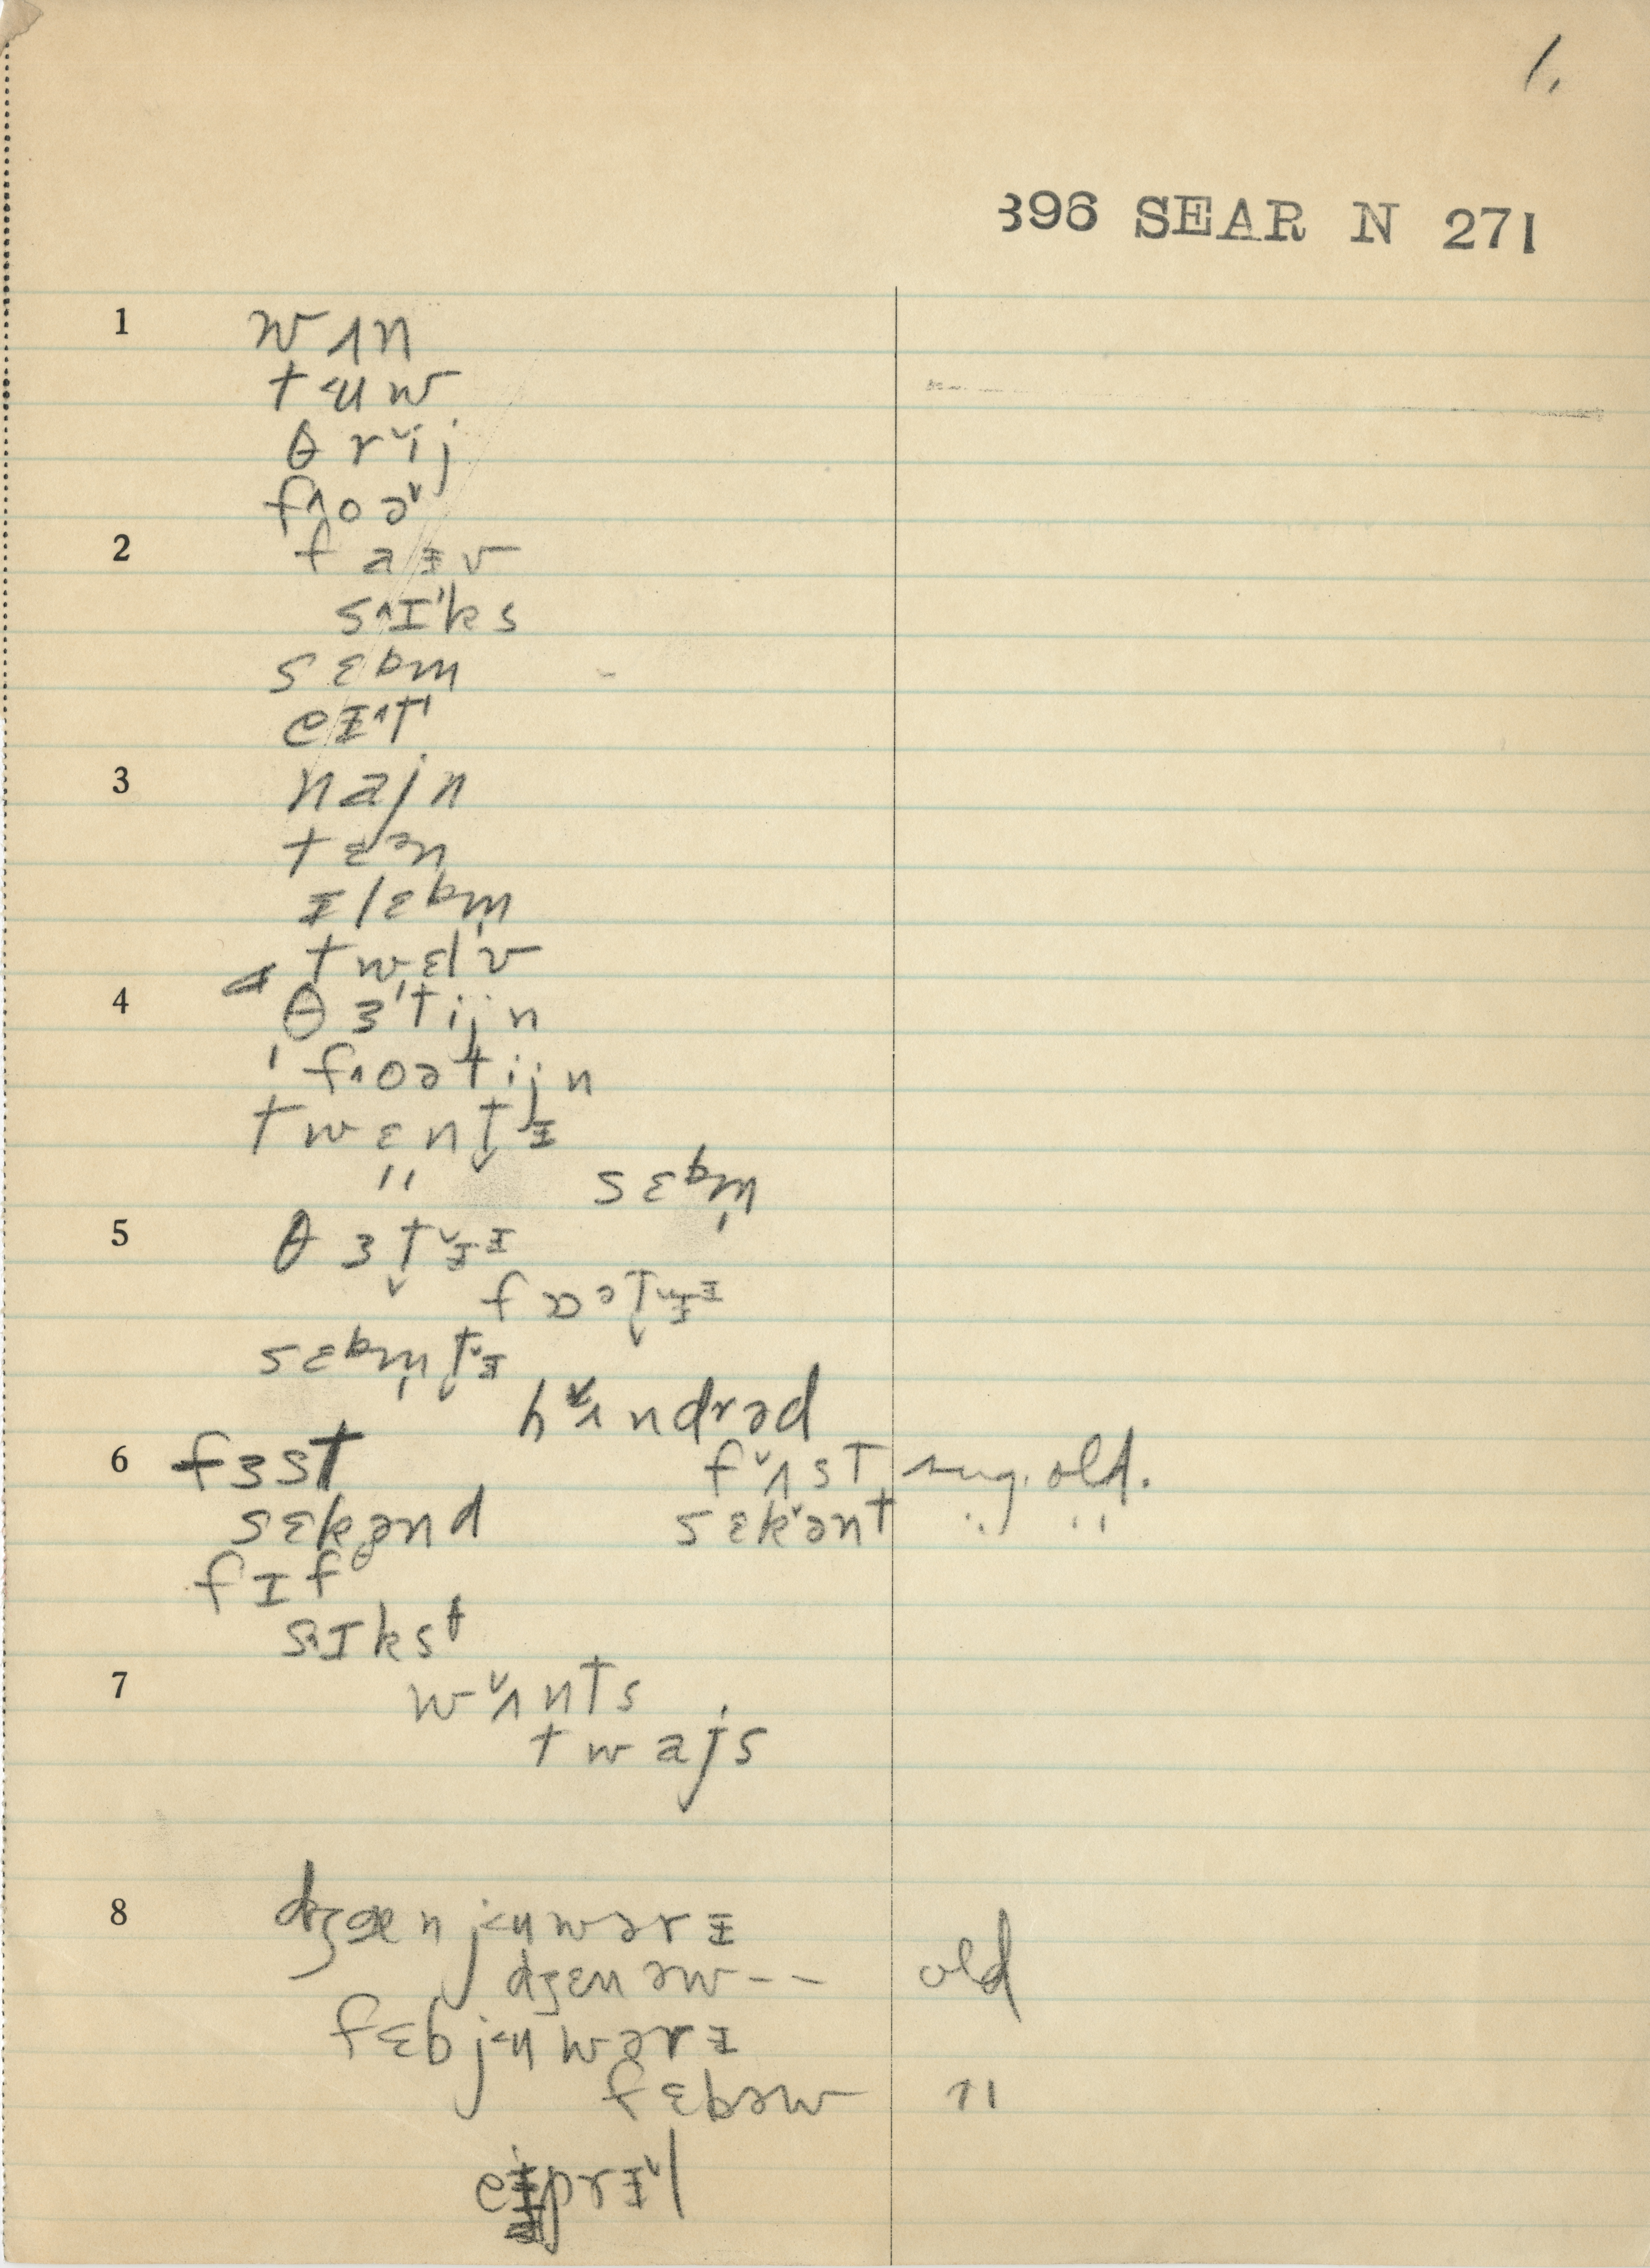 1.
396 SEAR N 271
1 wʌn
tʉw
θr˅ij
f˄oə˅
2 faᵻv
s˄ɪ'ks
sɛbm
eᵻ˄t'
3 najn
tɛᵊn
ᵻlɛbm̩
twɛl'v
4 θɜ'tijn
'f˄oətijn
twɛnt̬ᵻ
" sɛbm̩
5 θɜt̬˅ᵻᵻ
sɛbm̩t̬˅ᵻ
h˅ʌndrəd
6 fɜst f˅ʌst sug. old.
sɛkənd sɛk˅ənt " "
fɪfθ
s˄ɪkst
7 w˅ʌnts
twajs
8 dʒænjʉwərᵻ
dʒɛnəw-- old
fɛbjʉwərᵻ
fɛbəw "